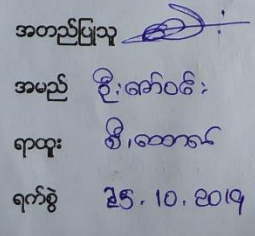 အတည်ပြုသူ
အမည် ဦးဇော်ဝင်း
ရာထူး
ရက်စွဲ 25.10.2019